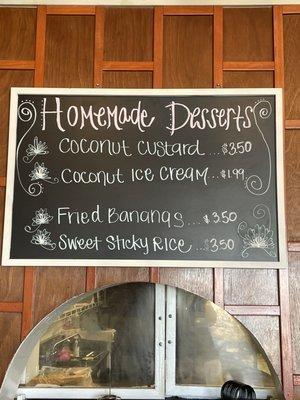 Homemade Desserts
Coconut Custard....$3.50
Coconut Ice Cream...$1.99
Fried Bananas...$3.50
Sweet Sticky Rice...$3.50